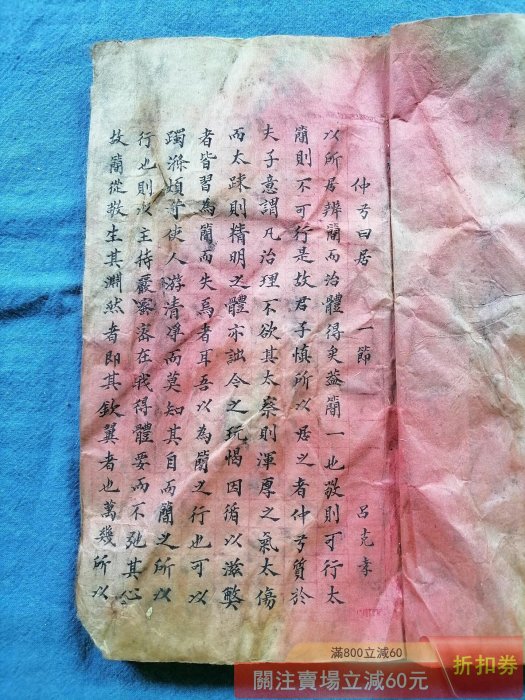 仲弓曰居 一節 呂克孝
以所居辨簡而治體得矣蓋簡一也敬則可行太
簡則不可行是故君子慎所以居之者仲弓質於
夫子意謂凡治理不欲其太察則渾厚之氣太傷
而太踈則精明之體亦詘今之玩愒因循以滋弊
者皆習為簡而失焉者耳吾以為簡之行也可以
蠲滌煩苛使人游清淨而莫知其自而簡之所以
行也則以主持嚴密審在我得體要而不弛其心
故簡從敬生其淵然者即其欽翼者也萬幾所以
滿800立減60
關注賣場立減60元
折扣券